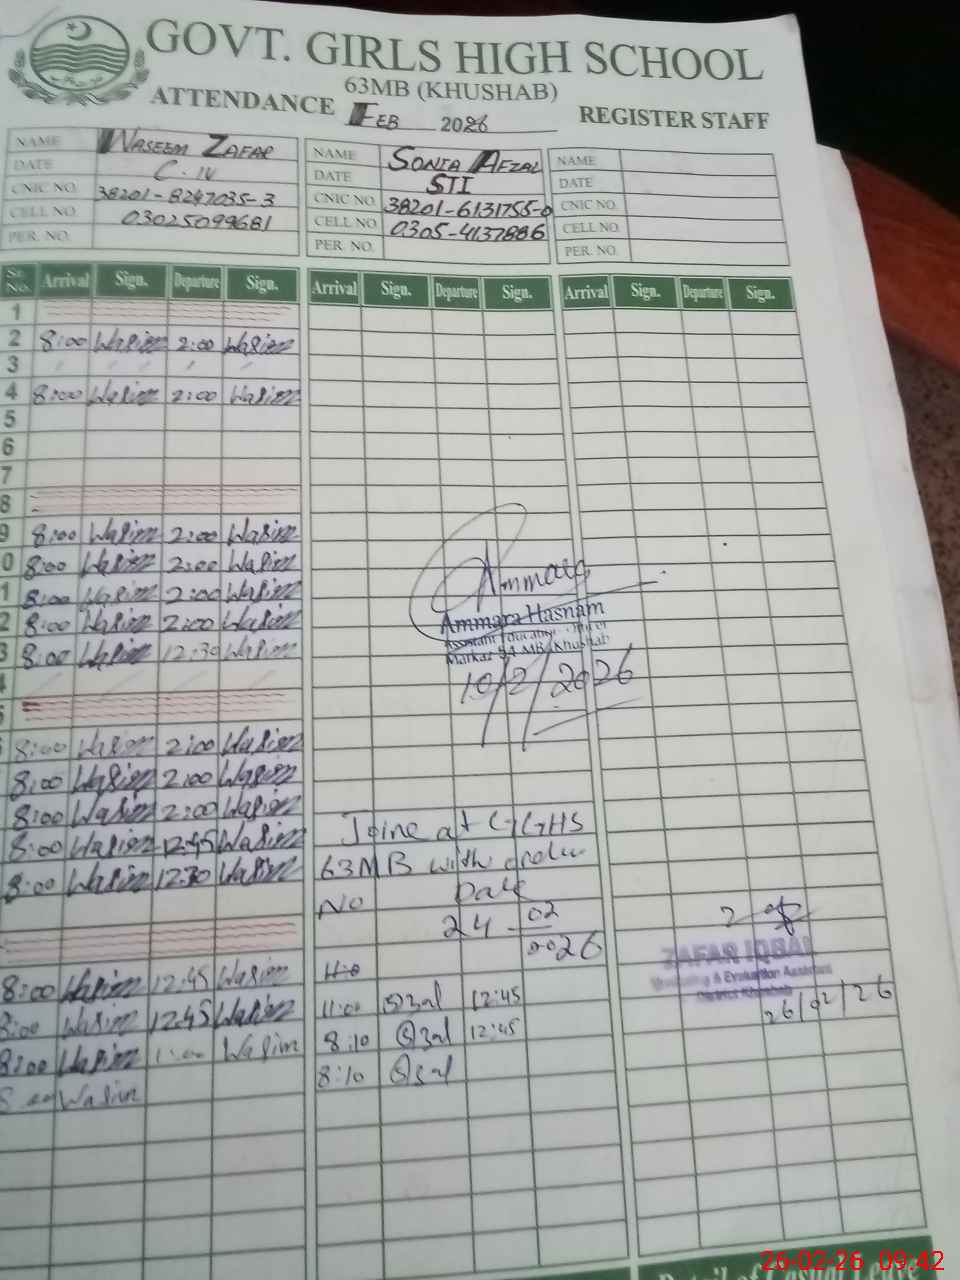 GOVT. GIRLS HIGH SCHOOL
63MB (KHUSHAB)
ATTENDANCE FEB 2026 REGISTER STAFF
NAME WASEEM ZAFAR
DATE C. IV
CNIC NO. 38201-8247035-3
CELL NO. 03025099681
PER. NO.
NAME SONIA AFZAL
DATE STI
CNIC NO. 38201-6131755-0
CELL NO. 0305-4137886
PER. NO.
NAME
DATE
CNIC NO.
CELL NO.
PER. NO.
Sr. No. Arrival Sign. Departure Sign. Arrival Sign. Departure Sign. Arrival Sign. Departure Sign.
1
2 8:00 Wasim 2:00 Wasim
3
4 8:00 Wasim 2:00 Wasim
5
6
7
8
9 8:00 Wasim 2:00 Wasim
0 8:00 Wasim 2:00 Wasim
1 8:00 Wasim 2:00 Wasim
2 8:00 Wasim 2:00 Wasim
3 8:00 Wasim 12:30 Wasim
8:00 Wasim 2:00 Wasim
8:00 Wasim 2:00 Wasim
8:00 Wasim 2:00 Wasim
8:00 Wasim 12:45 Wasim
8:00 Wasim 12:30 Wasim
8:00 Wasim 12:45 Wasim
8:00 Wasim 12:45 Wasim
8:00 Wasim 1:00 Wasim
Wasim
Ammara
Ammara Hasnam
Assistant Education Officer
Markaz 54 MB Khushab
10/2/2026
Joine at GGHS
63MB with order
No Date
24-02
2026
11:00 12:45
8:10 12:45
8:10
ZAFAR IQBAL
Monitoring & Evaluation Assistant
District Khushab
26/02/26
26-02-26 09:42